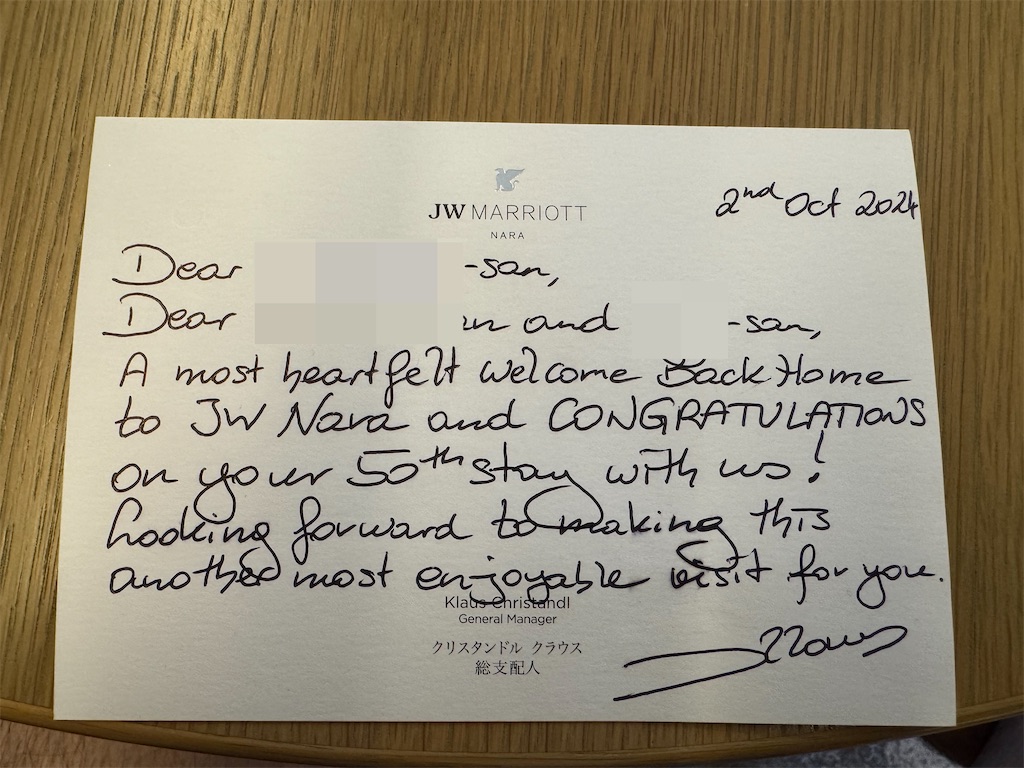 JW MARRIOTT
NARA
2nd Oct 2024
Dear -san,
Dear and -san,
A most heartfelt welcome Back Home
to JW Nara and CONGRATULATIONS
on your 50th stay with us!
Looking forward to making this
another most enjoyable visit for you.
Klaus Christandl
General Manager
クリスタンドル クラウス
総支配人